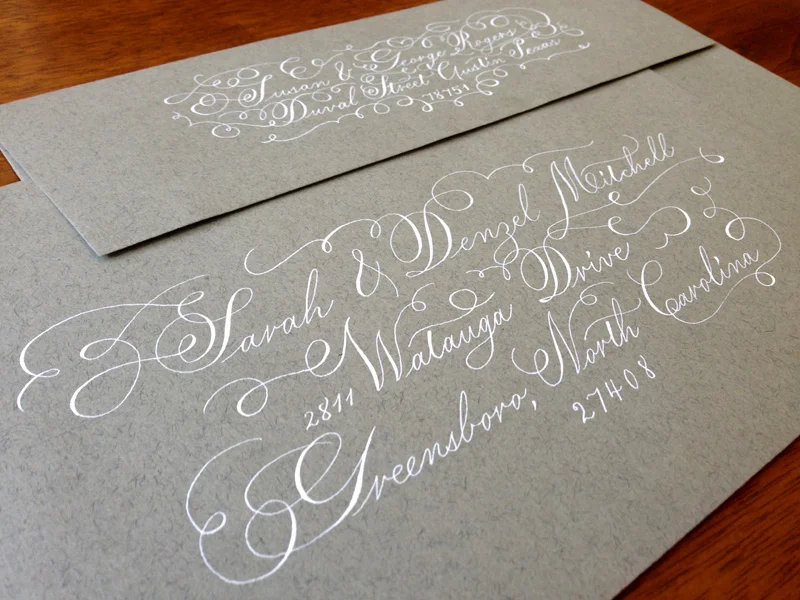 Susan & George Rogers
Duval Street Austin Texas
78751
Sarah & Denzel Mitchell
2811 Watauga Drive
Greensboro, North Carolina
27408